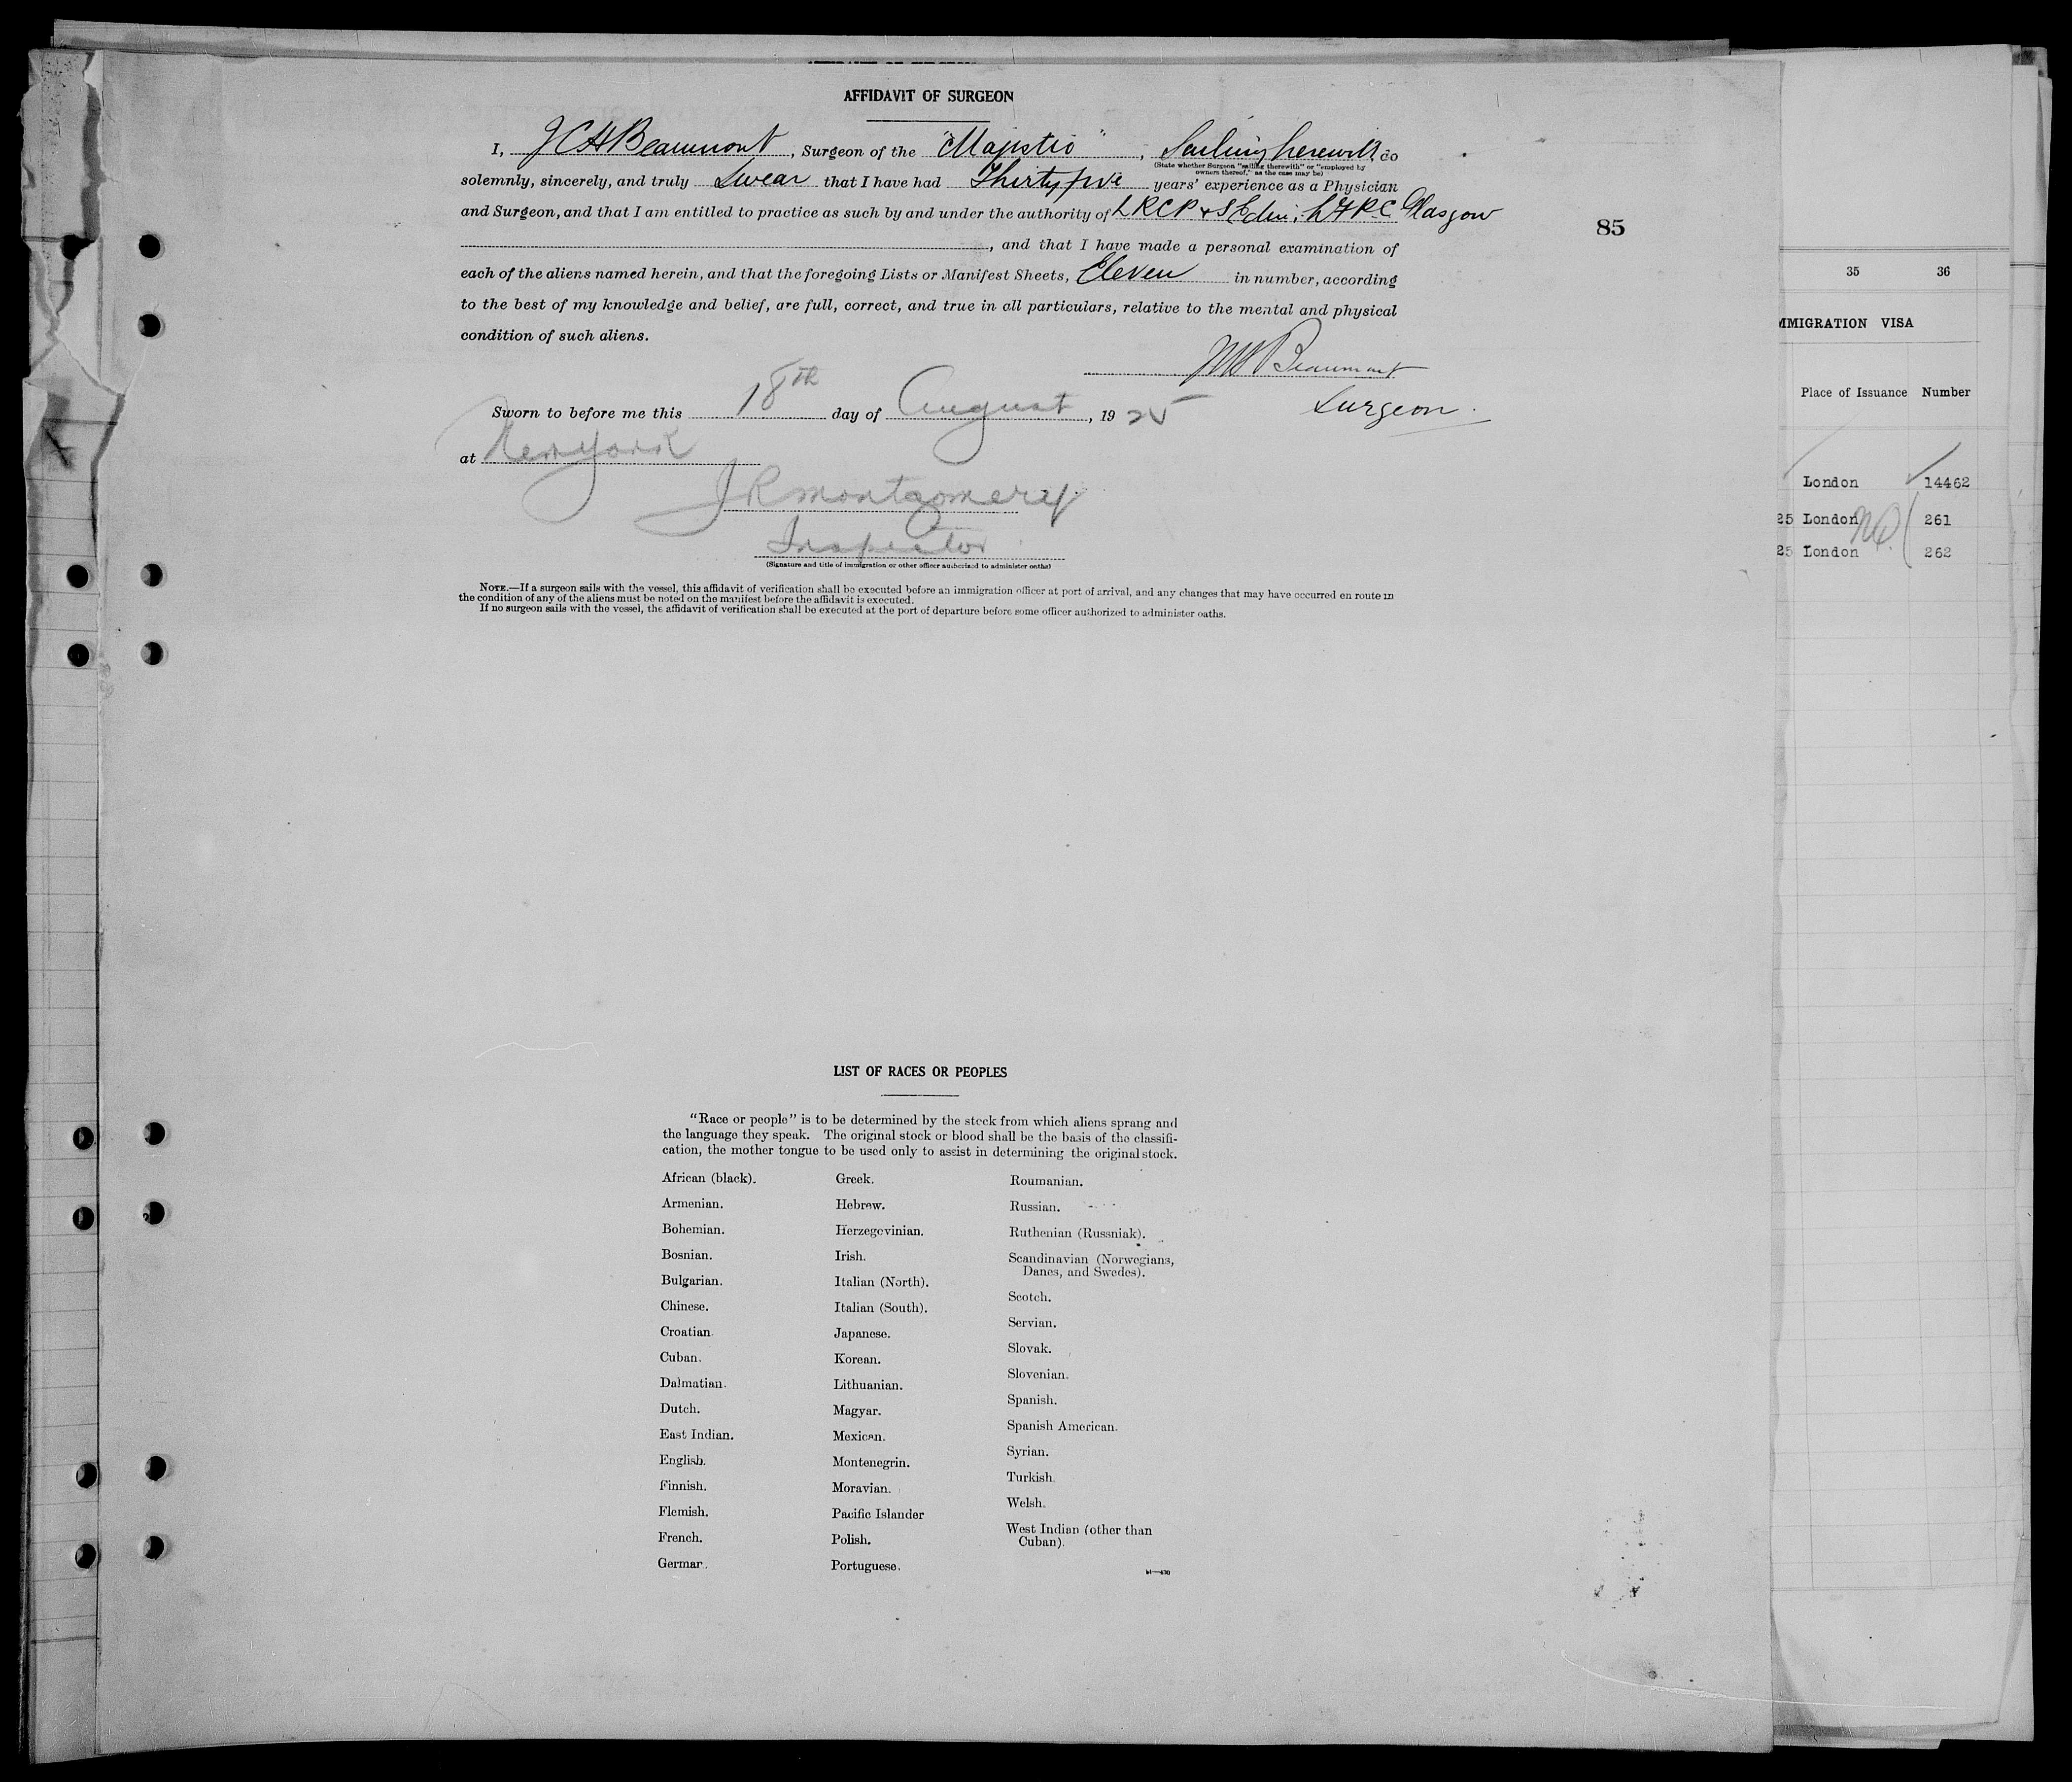 AFFIDAVIT OF SURGEON
I, J C H Beaumont, Surgeon of the "Majestic", Sailing herewith do
(State whether Surgeon "sailing therewith" or "employed by
owners thereof," as the case may be)
solemnly, sincerely, and truly Swear that I have had Thirty five years' experience as a Physician
and Surgeon, and that I am entitled to practice as such by and under the authority of L R C P & S Edin: Glasgow
85
, and that I have made a personal examination of
each of the aliens named herein, and that the foregoing Lists or Manifest Sheets, Eleven in number, according
to the best of my knowledge and belief, are full, correct, and true in all particulars, relative to the mental and physical
condition of such aliens.
Beaumont
Surgeon.
Sworn to before me this 18th day of August, 1925
at New York
J R Montgomery
Inspector
(Signature and title of immigration or other officer authorized to administer oaths)
NOTE.—If a surgeon sails with the vessel, this affidavit of verification shall be executed before an immigration officer at port of arrival, and any changes that may have occurred en route in
the condition of any of the aliens must be noted on the manifest before the affidavit is executed.
If no surgeon sails with the vessel, the affidavit of verification shall be executed at the port of departure before some officer authorized to administer oaths.
LIST OF RACES OR PEOPLES
"Race or people" is to be determined by the stock from which aliens sprang and
the language they speak. The original stock or blood shall be the basis of the classifi-
cation, the mother tongue to be used only to assist in determining the original stock.
African (black).
Armenian.
Bohemian.
Bosnian.
Bulgarian.
Chinese.
Croatian.
Cuban.
Dalmatian.
Dutch.
East Indian.
English.
Finnish.
Flemish.
French.
German.
Greek.
Hebrew.
Herzegovinian.
Irish.
Italian (North).
Italian (South).
Japanese.
Korean.
Lithuanian.
Magyar.
Mexican.
Montenegrin.
Moravian.
Pacific Islander
Polish.
Portuguese.
Roumanian.
Russian.
Ruthenian (Russniak).
Scandinavian (Norwegians,
Danes, and Swedes).
Scotch.
Servian.
Slovak.
Slovenian.
Spanish.
Spanish American.
Syrian.
Turkish.
Welsh.
West Indian (other than
Cuban).
35 36
IMMIGRATION VISA
Place of Issuance Number
London 14462
25 London 261
25 London 262